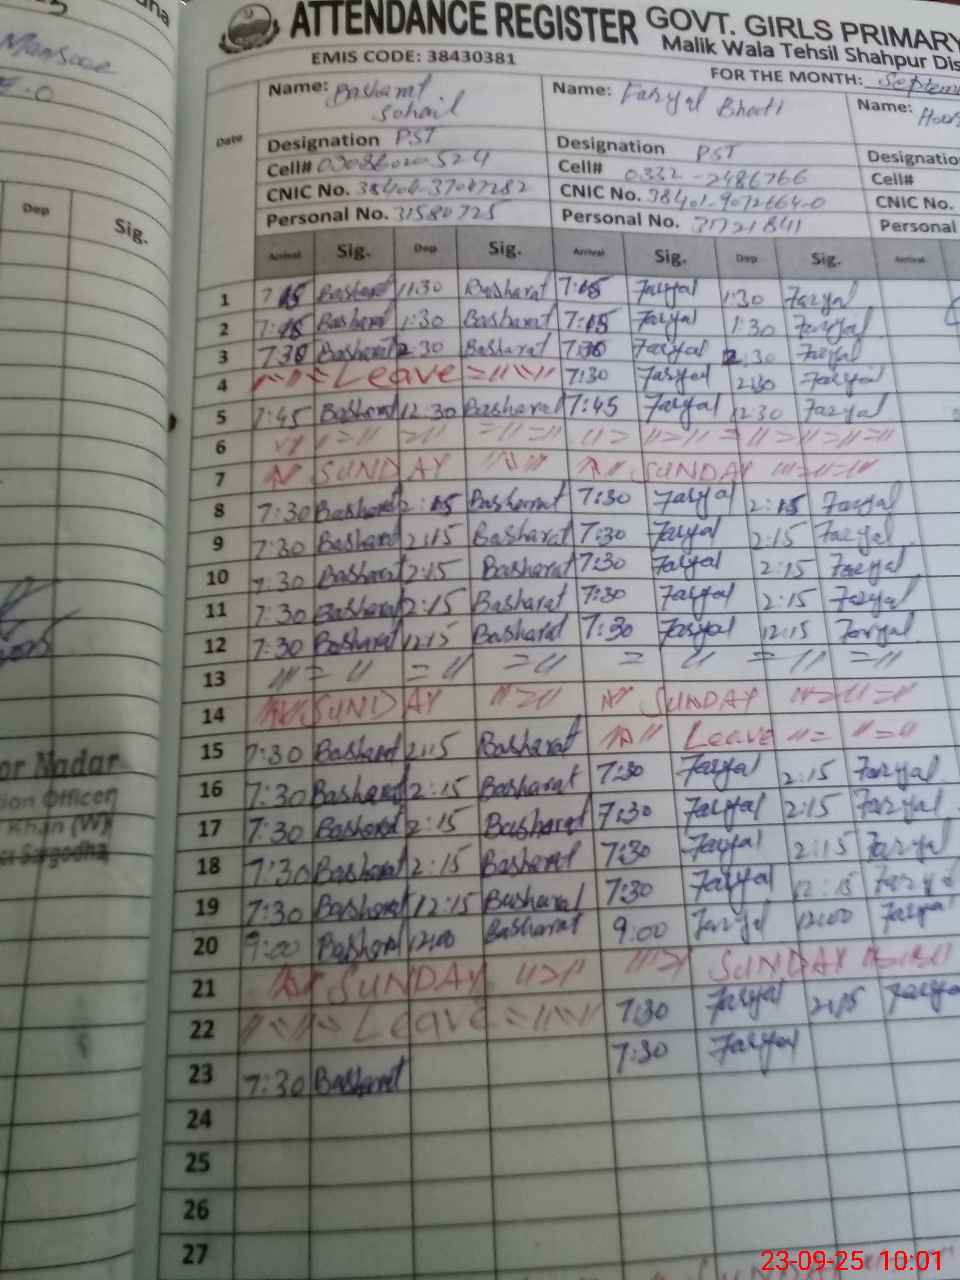 ATTENDANCE REGISTER GOVT. GIRLS PRIMARY
Malik Wala Tehsil Shahpur Dis
EMIS CODE: 38430381
FOR THE MONTH: Septem
Date Name: Basharat Sohail Name: Faryal Bhatti Name:
Designation PST Designation PST Designatio
Cell# Cell# 0332-2486766 Cell#
CNIC No. CNIC No. 38401-9072664-0 CNIC No.
Personal No. 31580725 Personal No. 31721841 Personal
Dep Sig.
Arrival Sig. Dep Sig. Arrival Sig. Dep Sig. Arrival
1 7:15 Basharat 11:30 Basharat 7:15 Faryal 1:30 Faryal
2 7:15 Basharat 1:30 Basharat 7:15 Faryal 1:30 Faryal
3 7:30 Basharat 2:30 Basharat 7:30 Faryal 2:30 Faryal
4 Leave 7:30 Faryal 2:30 Faryal
5 7:45 Basharat 12:30 Basharat 7:45 Faryal 12:30 Faryal
6 〃 = 〃 = 〃 = 〃 = 〃
7 SUNDAY SUNDAY
8 7:30 Basharat 2:15 Basharat 7:30 Faryal 2:15 Faryal
9 7:30 Basharat 2:15 Basharat 7:30 Faryal 2:15 Faryal
10 7:30 Basharat 2:15 Basharat 7:30 Faryal 2:15 Faryal
11 7:30 Basharat 2:15 Basharat 7:30 Faryal 2:15 Faryal
12 7:30 Basharat 12:15 Basharat 7:30 Faryal 12:15 Faryal
13 〃 = 〃 = 〃 = 〃 = 〃 = 〃 = 〃
14 SUNDAY SUNDAY
15 7:30 Basharat 2:15 Basharat Leave
16 7:30 Basharat 2:15 Basharat 7:30 Faryal 2:15 Faryal
17 7:30 Basharat 2:15 Basharat 7:30 Faryal 2:15 Faryal
18 7:30 Basharat 2:15 Basharat 7:30 Faryal 2:15 Faryal
19 7:30 Basharat 12:15 Basharat 7:30 Faryal 12:15 Faryal
20 9:00 Basharat 12:00 Basharat 9:00 Faryal 12:00 Faryal
21 SUNDAY SUNDAY
22 Leave 7:30 Faryal 2:15 Faryal
23 7:30 Basharat 7:30 Faryal
24
25
26
27
or Nadar
ion Officer
Khan (W)
Sargodha
23-09-25 10:01